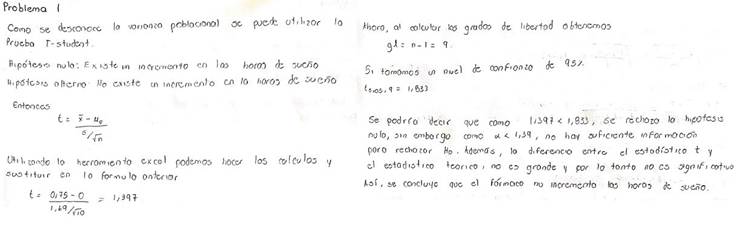 Problema 1
Como se desconoce la varianza poblacional se puede utilizar la
Prueba T-student.
Hipótesis nula: Existe un incremento en las horas de sueño
Hipótesis alterna: No existe un incremento en la horas de sueño
Entonces
t = x̄ - u₀ / s/√n
Utilizando la herramienta excel podemos hacer los calculos y
sustituir en la formula anterior
t = 0,75 - 0 / 1,69/√10 = 1,397
Ahora, al calcular los grados de libertad obtenemos
gl = n - 1 = 9.
Si tomamos un nivel de confianza de 95%
t₀,₀₅,₉ = 1,833
Se podría decir que como 1,397 < 1,833, se rechaza la hipotesis
nula, sin embargo como α < 1,39, no hay suficiente información
para rechazar Ho. Además, la diferencia entre el estadístico t y
el estadístico teorico, no es grande y por lo tanto no es significativa
Así, se concluye que el fármaco no incrementa las horas de sueño.